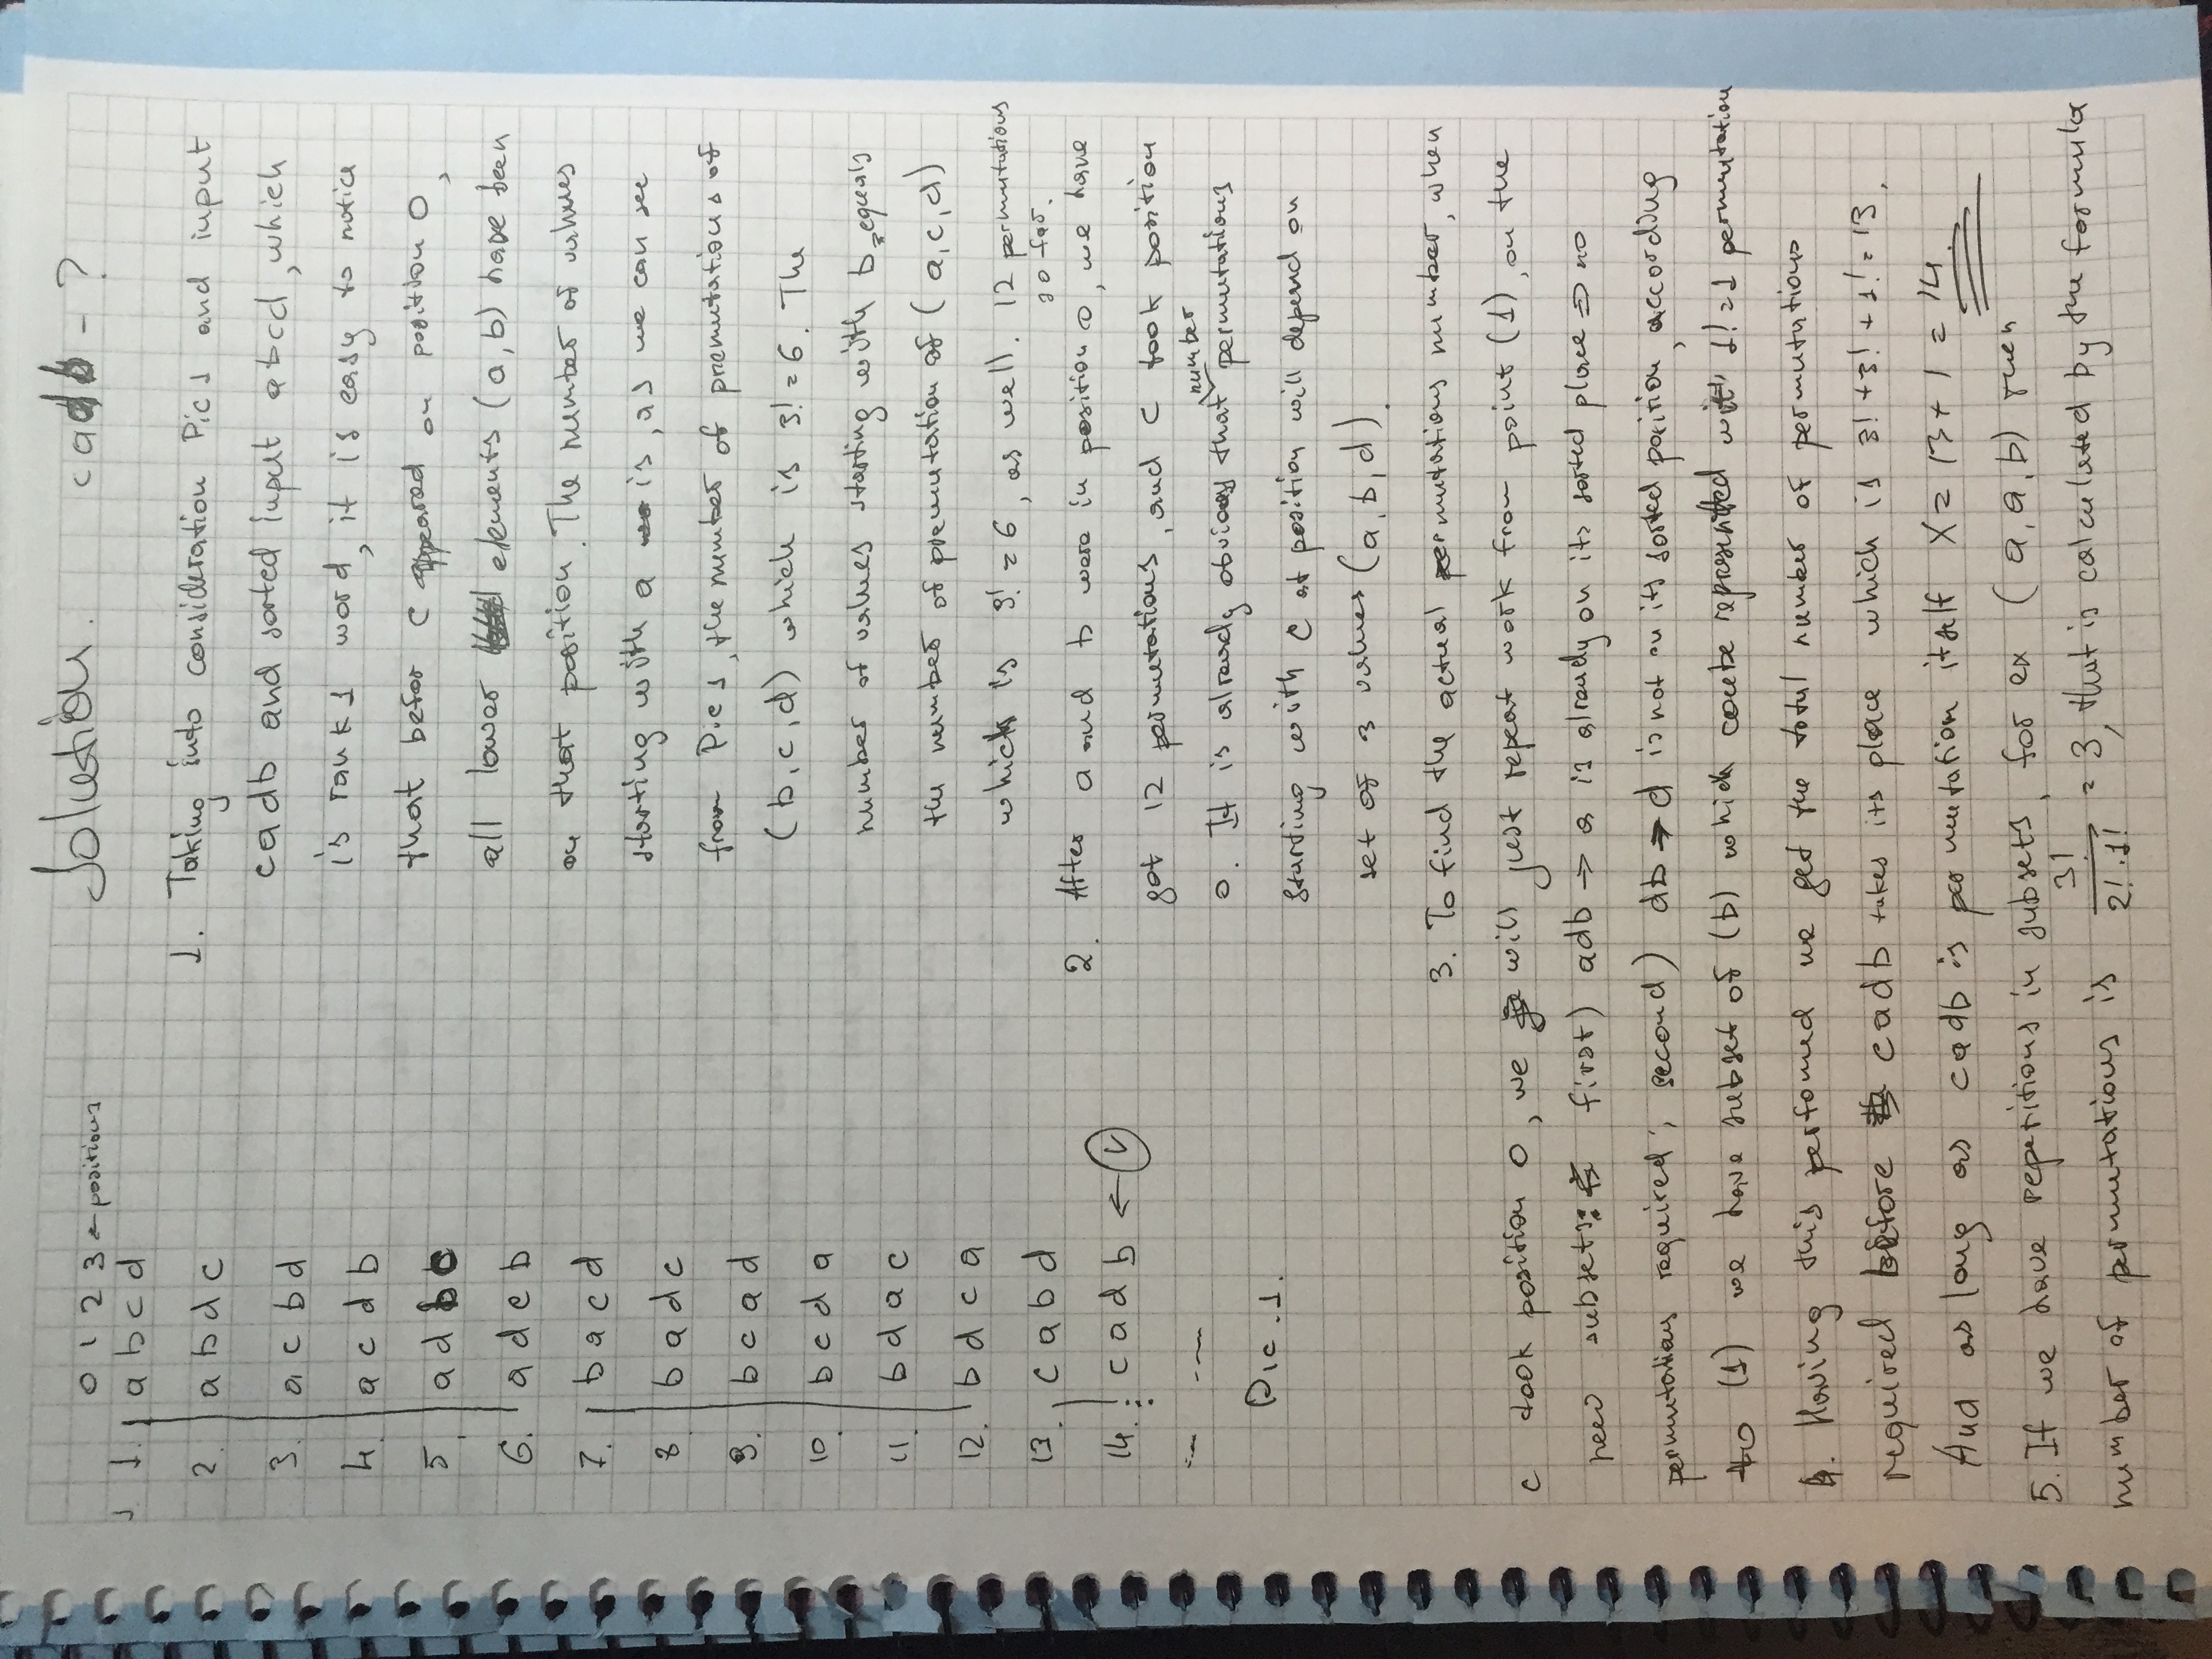 Solution. cadb - ?
0 1 2 3 ← positions
1. a b c d
2. a b d c
3. a c b d
4. a c d b
5. a d b c
6. a d c b
7. b a c d
8 b a d c
9. b c a d
10. b c d a
11. b d a c
12. b d c a
13. c a b d
14. c a d b ←
Pic. 1.
1. Taking into consideration Pic 1 and input
cadb and sorted input abcd, which
is rank 1 word, it is easy to notice
that befor c appeared on position 0,
all lower elements (a, b) have been
on that position. The number of values
starting with a is, as we can see
from Pic 1, the number of premutations of
(b, c, d) which is 3! = 6. The
number of values starting with b equals
the number of premutation of (a, c, d)
which is 3! = 6, as well. 12 permutations
so far.
2. After a and b were in position 0, we have
got 12 permutations, and c took position
0. It is already obvious that number permutations
starting with c at position will depend on
set of 3 values (a, b, d).
3. To find the actual permutations number, when
c took position 0, we will just repeat work from point (1), on the
new subsets: first) adb → a is already on its sorted place ⇒ no
permutations required; second) db → d is not on its sorted position, according
to (1) we have subset of (b) which represented with 1! = 1 permutation
4. Having this perfomed we get the total number of permutations
required before cadb takes its place which is 3! + 3! + 1! = 13.
And as long as cadb is permutation itself X = 13 + 1 = 14.
5. If we have repetitions in subsets, for ex (a, a, b) then
number of permutations is 3! / 2! · 1! = 3, that is calculated by the formula